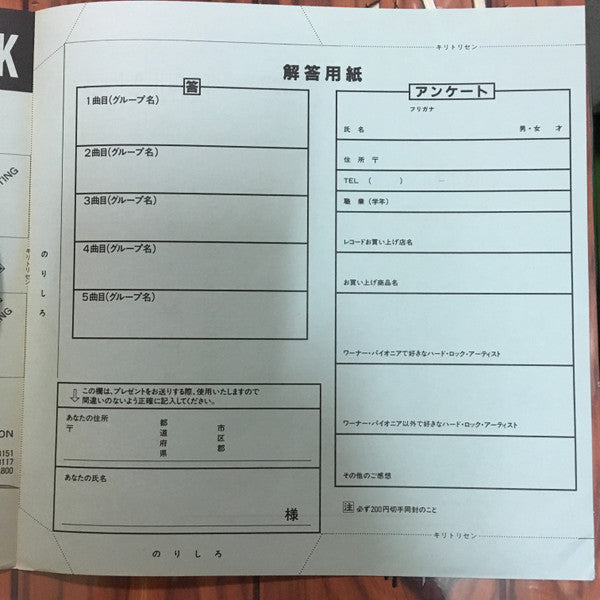 K
TING
ING
ION
3151
3117
800
キリトリセン
解答用紙
答
1曲目(グループ名)
2曲目(グループ名)
3曲目(グループ名)
4曲目(グループ名)
5曲目(グループ名)
アンケート
フリガナ
氏 名 男・女 才
住 所 〒
TEL ( ) ―
職 業 (学年)
レコードお買い上げ店名
お買い上げ商品名
ワーナー・パイオニアで好きなハード・ロック・アーティスト
ワーナー・パイオニア以外で好きなハード・ロック・アーティスト
その他のご感想
注 必ず200円切手同封のこと
キリトリセン
のりしろ
キリトリセン
この欄は、プレゼントをお送りする際、使用いたしますので
間違いのないよう正確に記入してください。
あなたの住所
〒
都道府県
市区郡
あなたの氏名
様
のりしろ